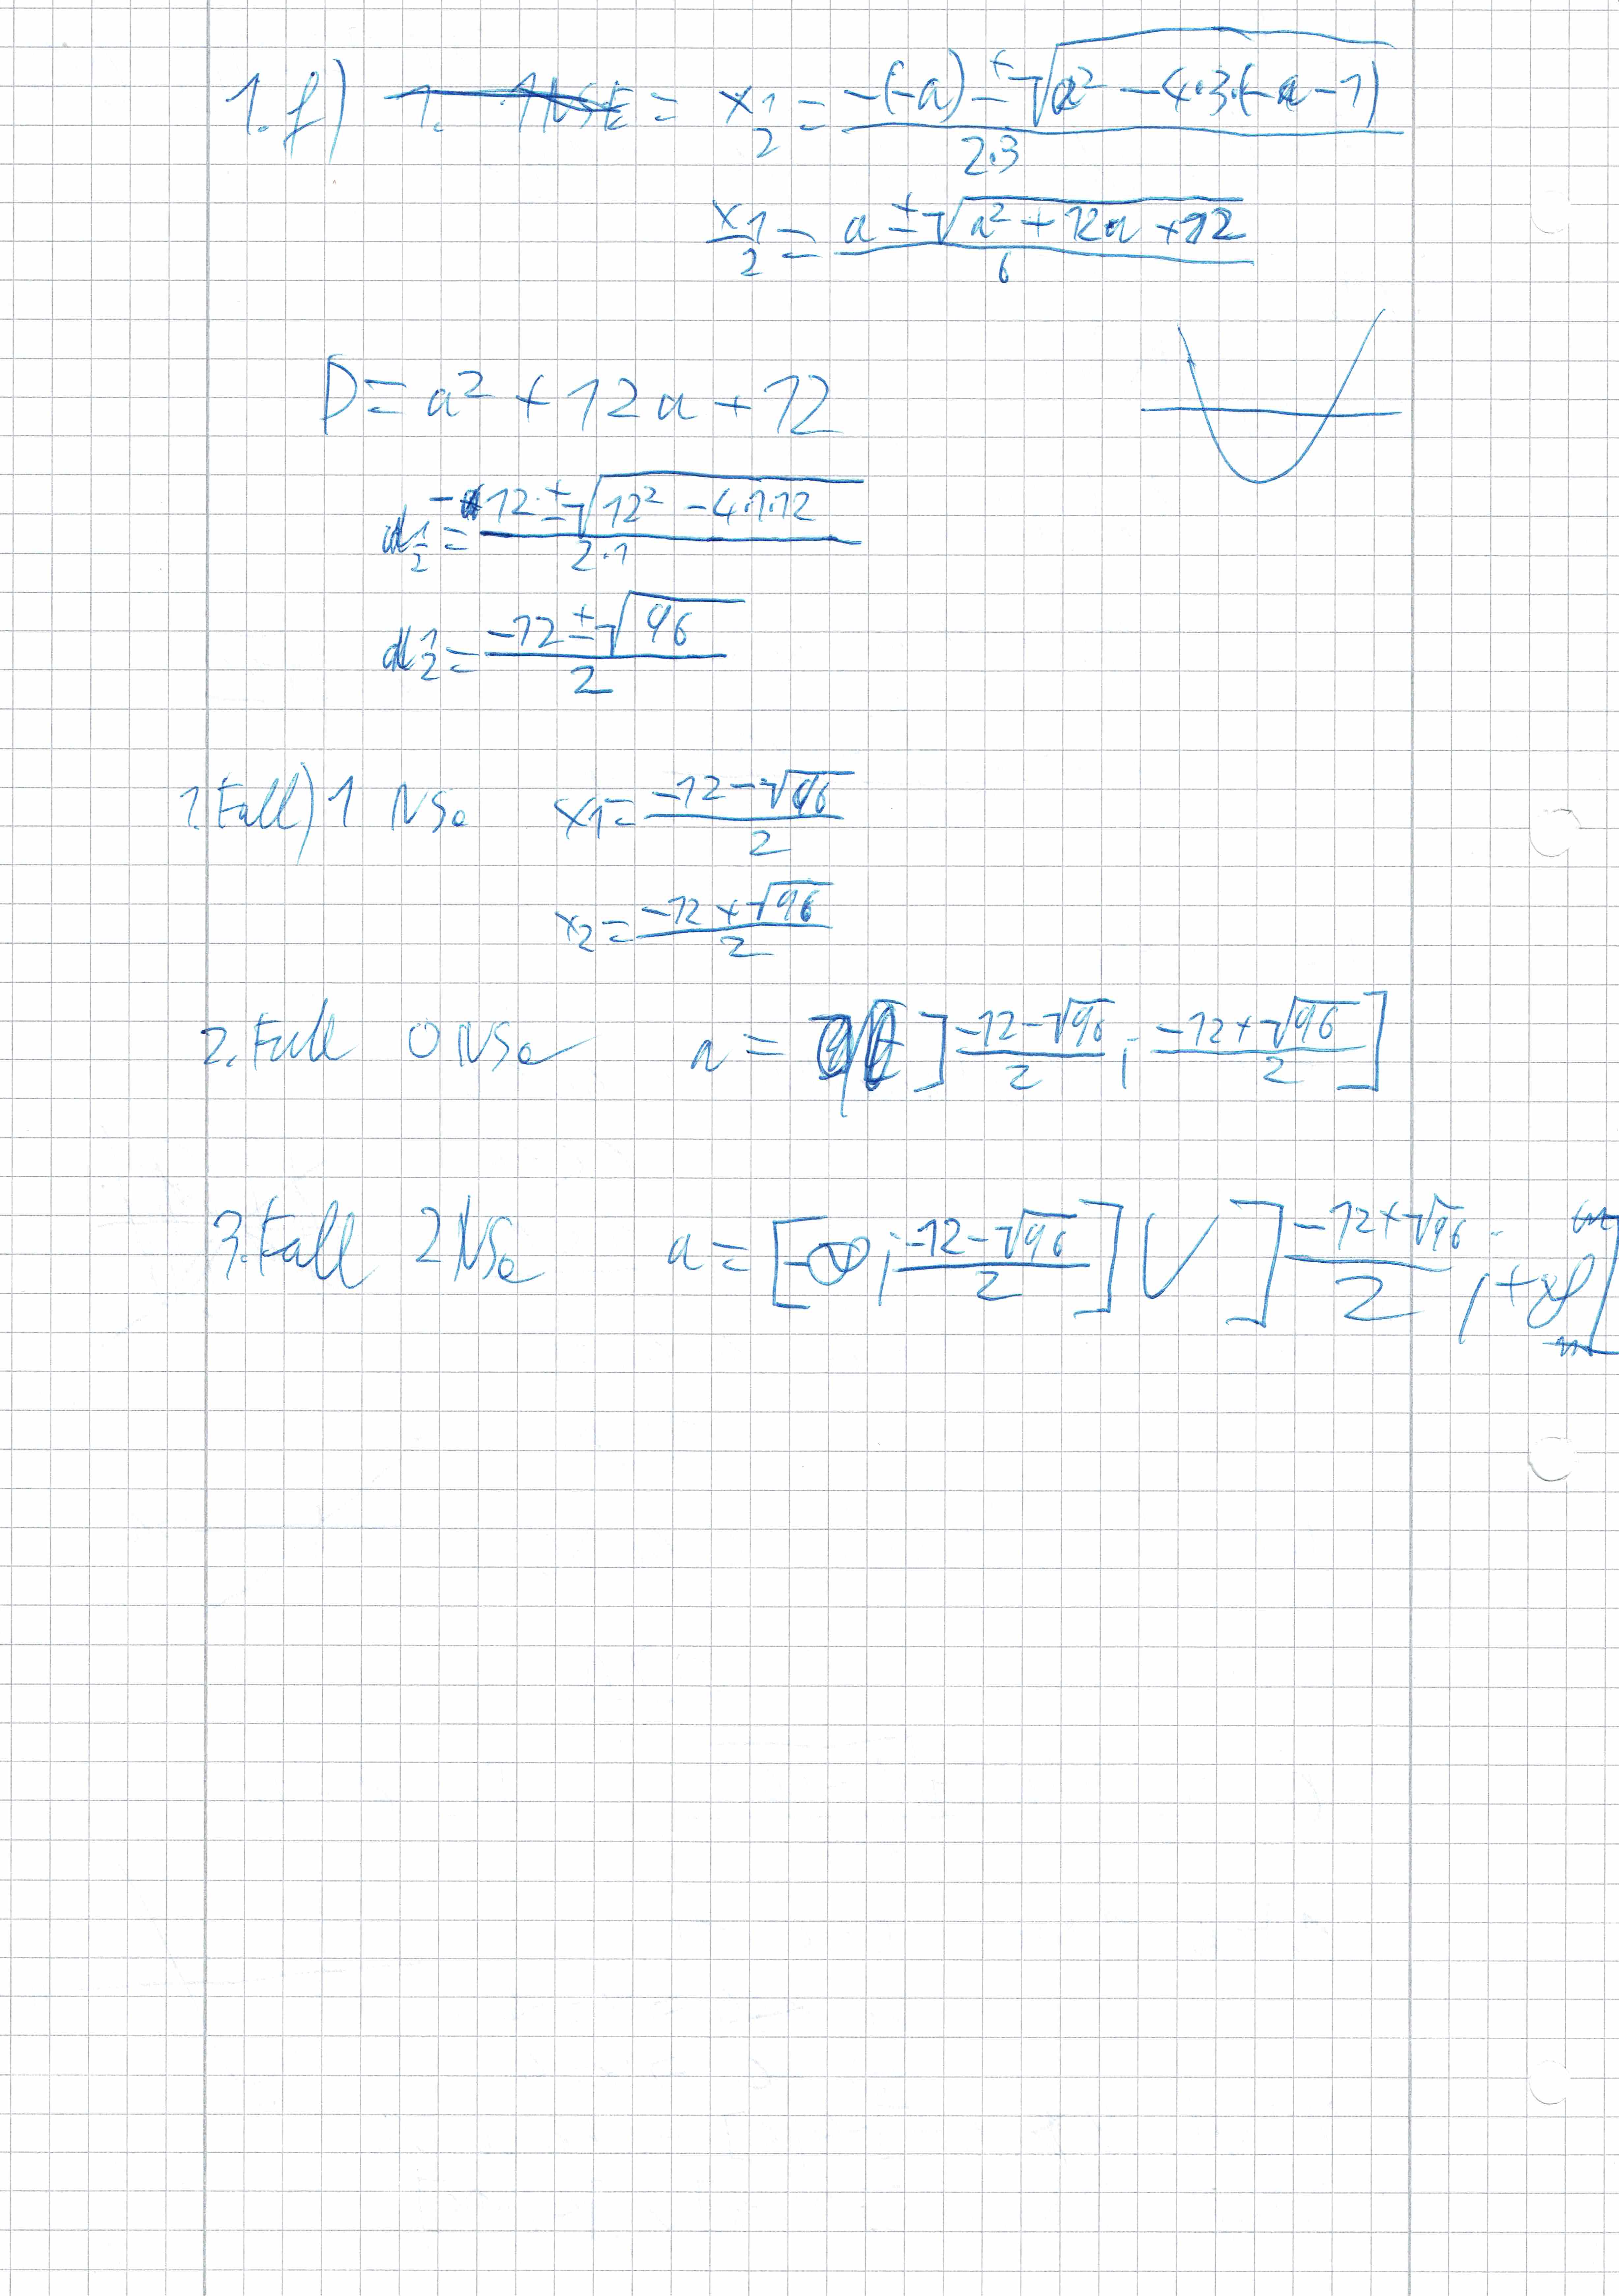 1.f) 1. 1NSt = x1/2 = (-(-a) ± √(a² - 4·3·(-a-1)))/(2·3)
x1/2 = (a ± √(a² + 12a + 12))/6
D = a² + 12a + 12
a1/2 = (-12 ± √(12² - 4·1·12))/(2·1)
a1/2 = (-12 ± √96)/2
1.Fall) 1 NSe x1 = (-12 - √96)/2
x2 = (-12 + √96)/2
2.Fall 0 NSe a = ](-12 - √96)/2 ; (-12 + √96)/2]
3.Fall 2 NSe a = [-∞ ; (-12 - √96)/2] ∪ ](-12 + √96)/2 ; +∞[